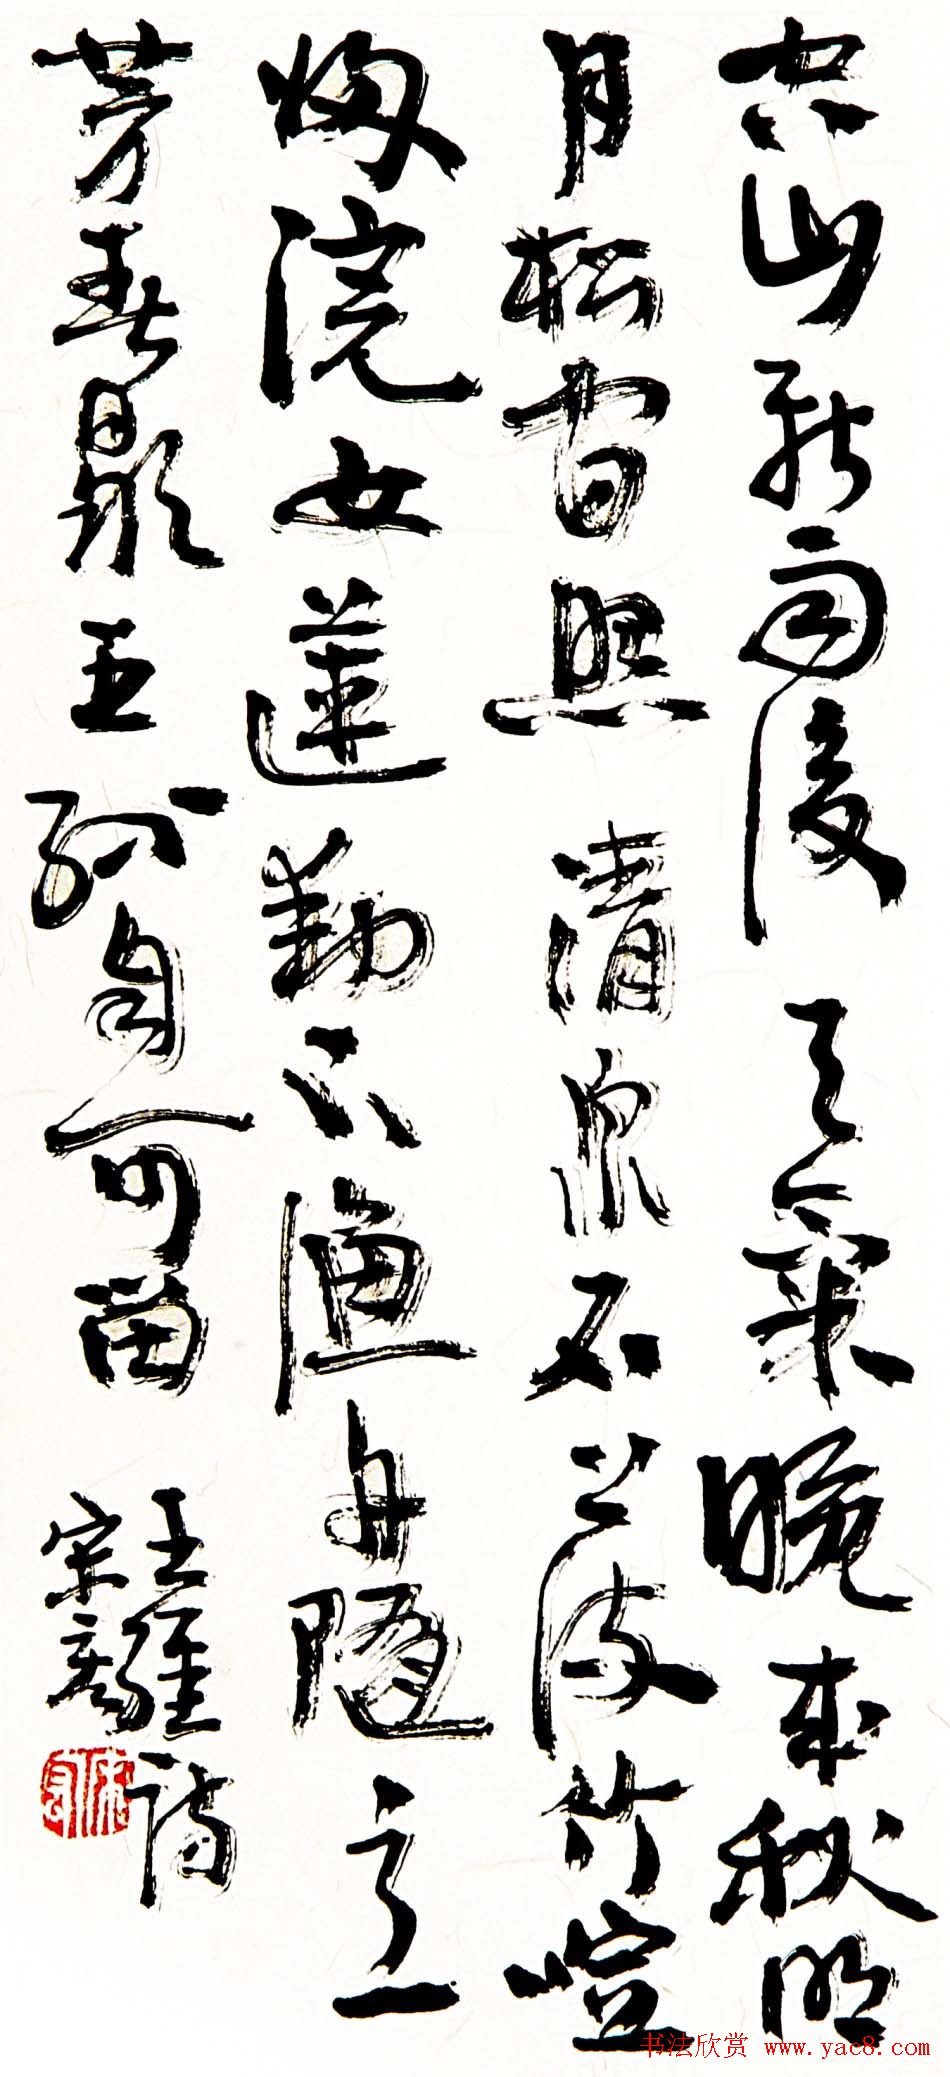 空山新雨後天氣晚來秋明
月松間照清泉石上流竹喧
歸浣女蓮動下漁舟隨意
芳春歇王孫自可留
王維詩
宋
书法欣赏 www.yac8.com